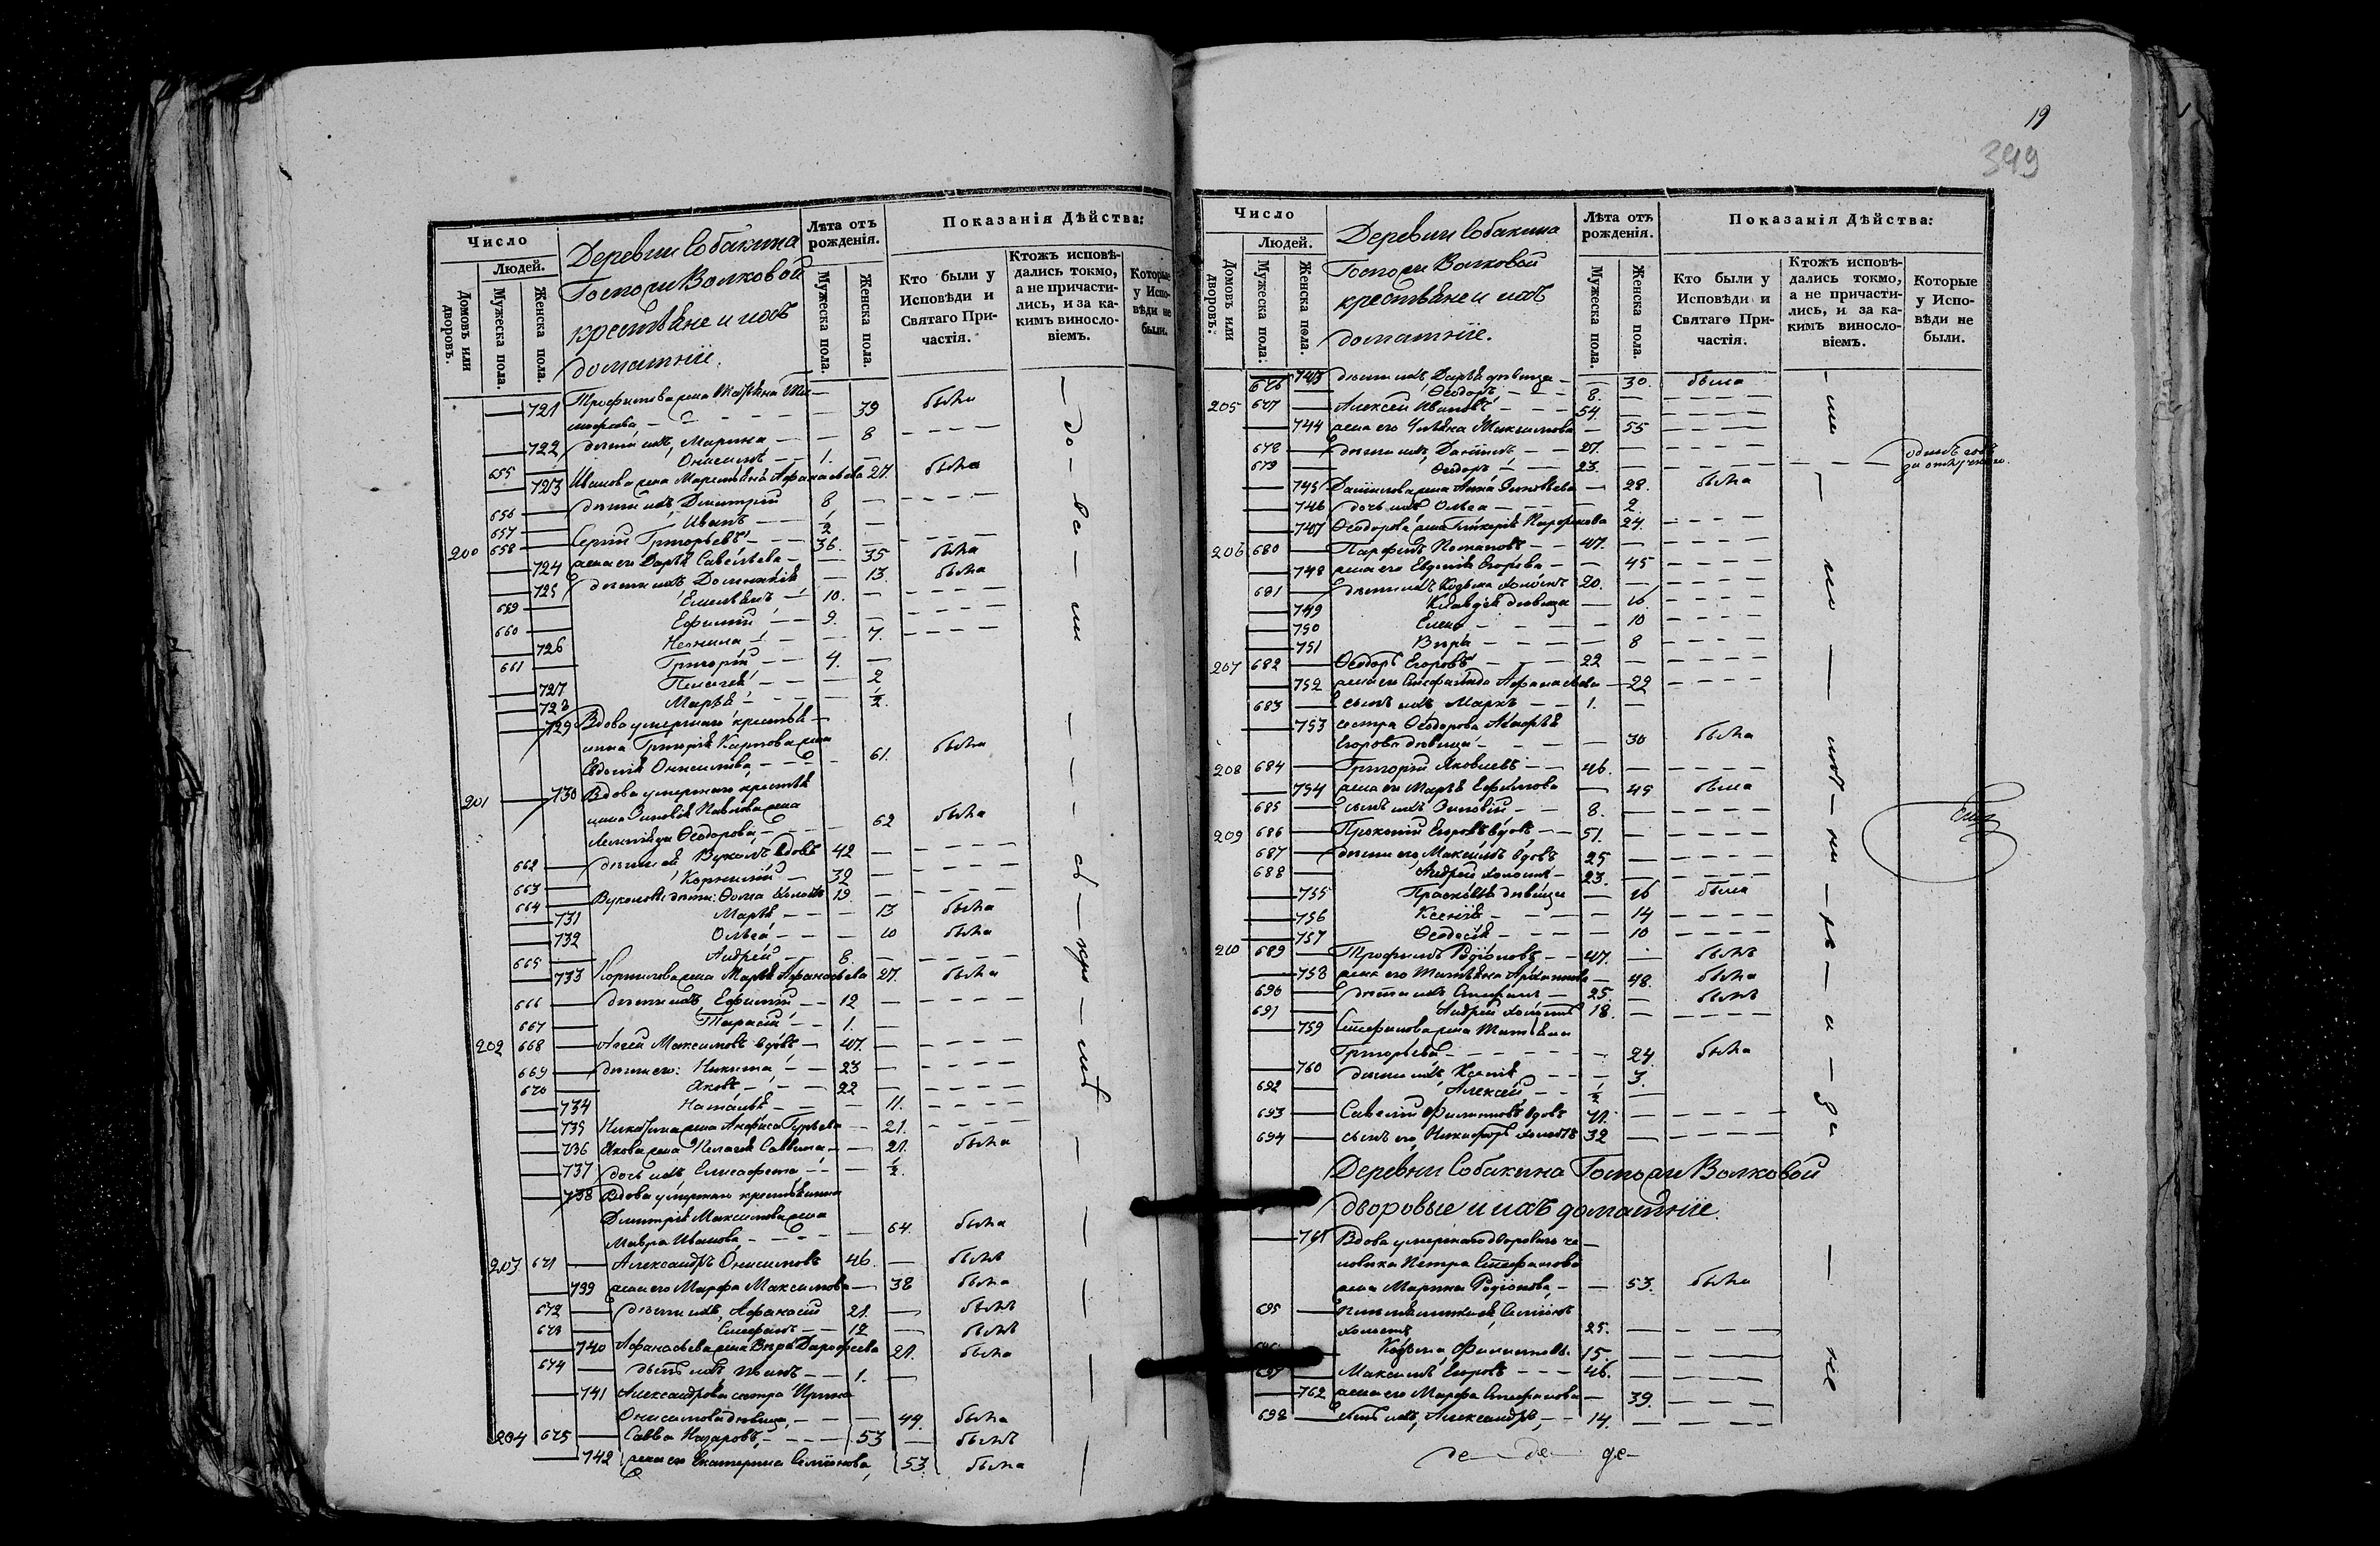 Число
Людей.
Домовъ или дворовъ.
Мужеска пола.
Женска пола.
Деревни Собакина
Госпожи Волковой
крестьяне и ихъ
домашніе.
Лѣта отъ рожденія.
Мужеска пола.
Женска пола.
Показанія Дѣйства:
Кто были у Исповѣди и Святаго Причастія.
Ктожъ исповѣдались токмо, а не причастились, и за какимъ винословіемъ.
Которые у Исповѣди не были.
721 Трофимова жена Татьяна Ти
мофеева 39 была
722 дѣти ихъ, Марина 8
655 Онисимъ 1.
723 Иванова жена Марѳа Афанасьева 27. была
656 дѣти ихъ Димитрій 8
657 Иванъ 1/2
200 658 Сергій Григорьевъ 36.
724 жена его Дарья Савельева 35 была
725 дѣти ихъ Домникія 13 была
659 Емельянъ 10.
660 Ефимій 9.
726 Неонила 7.
661 Григорій 4.
727 Пелагея 2
728 Марья 1/2
729 Вдова умершаго крестья
нина Григорія Карпова жена
Евдокія Онисимова 61. была
201 730 Вдова умершаго крестья
нина Зиновія Павлова жена
Ѳеодорова 62 была
662 дѣти ея Вуколъ вдовъ 42
663 Корнилій 32
664 Вуколовы дѣти: Ѳома холостъ 19
731 Марья 13 была
732 Ольга 10 была
665 Андрей 8.
733 Корнилова жена Марья Афанасьева 27. была
666 дѣти ихъ Ефимій 12
667 Тарасій 1.
202 668 Агей Максимовъ вдовъ 47.
669 дѣти его: Никита 23
670 Яковъ 22
734 Наталья 11.
735 Никитина жена Анфиса Гурьева 21.
736 Якова жена Пелагея Саввина 21. была
737 дочь ихъ Елисавета 1/2
738 Вдова умершаго крестьянина
Димитрія Максимова жена
Мавра Иванова 64. была
203 671 Александръ Онисимовъ 46. былъ
739 жена его Марфа Максимова 38 была
672 дѣти ихъ, Афанасій 21. былъ
673 Стефанъ 12 былъ
740 Афанасьева жена Вѣра Дорофеева 21. была
674 сынъ ихъ 1.
741 Александрова сестра Ирина
Онисимова дѣвица 49. была
204 675 Савва Назаровъ 53 былъ
742 жена его Екатерина Симіонова 53. была
19
349
Число
Людей.
Домовъ или дворовъ.
Мужеска пола.
Женска пола.
Деревни Собакина
Госпожи Волковой
крестьяне и ихъ
домашніе.
Лѣта отъ рожденія.
Мужеска пола.
Женска пола.
Показанія Дѣйства:
Кто были у Исповѣди и Святаго Причастія.
Ктожъ исповѣдались токмо, а не причастились, и за какимъ винословіемъ.
Которые у Исповѣди не были.
743 дѣти ихъ, Дарья дѣвица 30. была
676 Ѳеодоръ 8.
205 677 Алексей Ивановъ 54.
744 жена его Ульяна Максимова 55
678 дѣти ихъ, Даніилъ 27.
679 Ѳеодоръ 23.
745 Даніилова жена Анна Зиновьева 28. была
746 дочь ихъ Ольга 2.
747 Ѳеодорова жена Гликерія Парфенова 24.
206 680 Парфенъ Потаповъ 47.
748 жена его Евдокія Егорова 45
681 дѣти ихъ Козьма холостъ 20.
749 Клавдія дѣвица 16.
750 Елена 10
751 Вѣра 8
207 682 Ѳеодоръ Егоровъ 22
752 жена его Степанида Афанасьева 22
683 сынъ ихъ Маркъ 1.
753 сестра Ѳеодорова
Егорова дѣвица 30 была
208 684 Григорій Яковлевъ 46.
754 жена его Марья Ефимова 45 была
685 сынъ ихъ Зиновій 8.
209 686 Прокопій Егоровъ вдовъ 51.
687 дѣти его, Максимъ вдовъ 25
688 Андрей холостъ 23.
755 Прасковья дѣвица 16 была
756 Ксенія 14
757 Ѳеодосія 10
210 689 Трофимъ Родіоновъ 47. былъ
758 жена его Татьяна Архипова 48. была
690 дѣти ихъ Стефанъ 25. былъ
691 Андрей холостъ 18.
759 Стефанова жена Татьяна
Григорьева 24. была
760 дѣти ихъ, Ксенія 3.
692 Алексей 1/2
693 Савелій Филиповъ вдовъ 71.
694 сынъ его, Никифоръ холостъ 32
Деревни Собакина Госпожи Волковой
дворовые и ихъ домашніе.
761 Вдова умершаго двороваго че
ловѣка Петра Стефанова
жена Марина Родіонова 53. была
695 Симіонъ
холостъ 25.
Козьма Филиповъ 15.
697 Максимъ Егоровъ 46.
762 жена его Марфа Стефанова 39.
698 сынъ ихъ, Александръ 14.